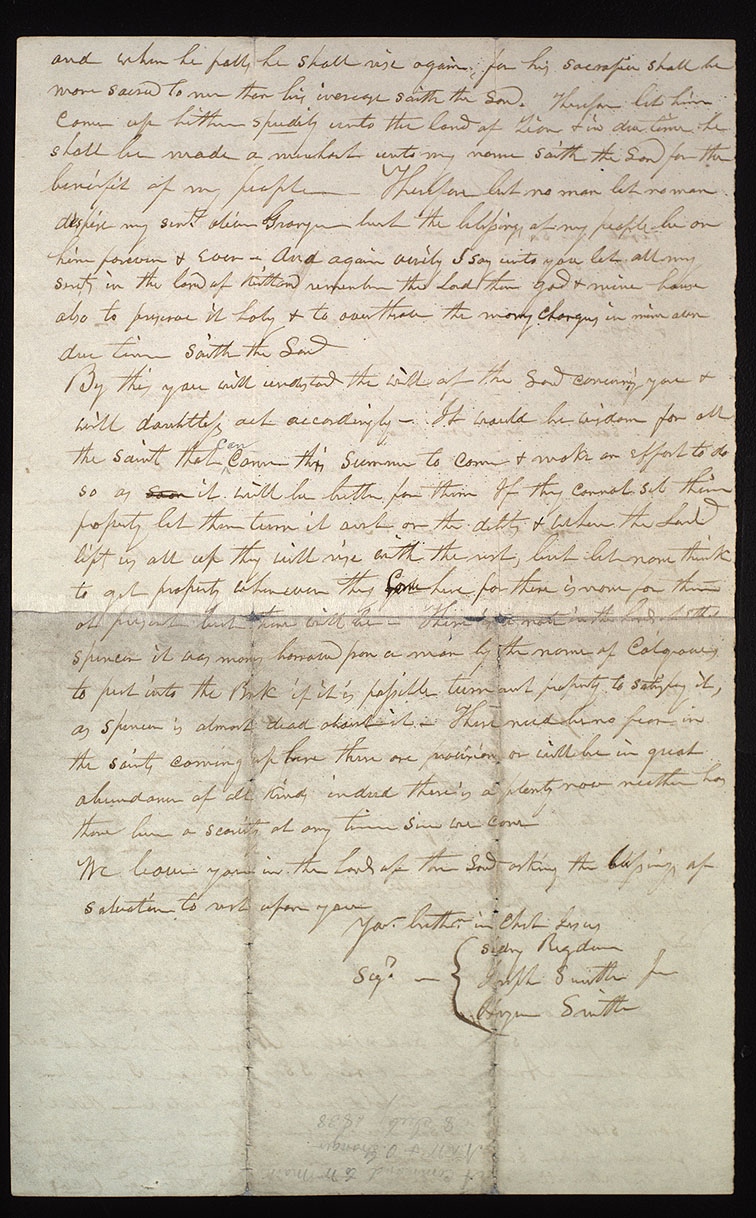 and when he falls he shall rise again, for his sacrafice shall be
more sacred to me than his increase saith the Lord. Therefore let him
Come up hither speedely unto the land of Zion & in due time he
shall be made a merchant unto my name saith the Lord for the
benifit of my people— Therefore let no man let no man
despise my servt. oliver Granger but the blessings of my people be on
him forever & Ever — And again verily I say unto you let all my
servts in the land of Kirtland remember the Lord their God & mine house
also to preserve it holy & to overthrow the mony Chargers in mine own
due time Saith the Lord
By this you will understand the will of the Lord concerning you &
will doubtless act accordingly — It would be wisdom for all
the saints that can Come this Summer to come & make an effort to do
so as soon it will be better for them If they cannot sell their
property let them turn it out on the debts & when the Lord
lifts us all up they will rise with the rest, but let none think
to get property whenever they Come here for there is none for them
at present but there will be — There is a note in the hands of
Spencer it was mony borrowed from a man by the name of Colgrove
to put into the Bank if it is possible turn out property to satisfy it,
as spencer is almost dead about it — There need be no fear in
the saints coming up here there are provisions or will be in great
abundance of all kinds indeed there is a plenty now neither has
there been a scarcity at any time since we come
We leave you in the hands of the Lord asking the blessings of
salvation to rest upon you
Your brethren in Christ Jesus
Sidny Rigdon
Sigd. — Joseph Smith Jr
Hyrum Smith